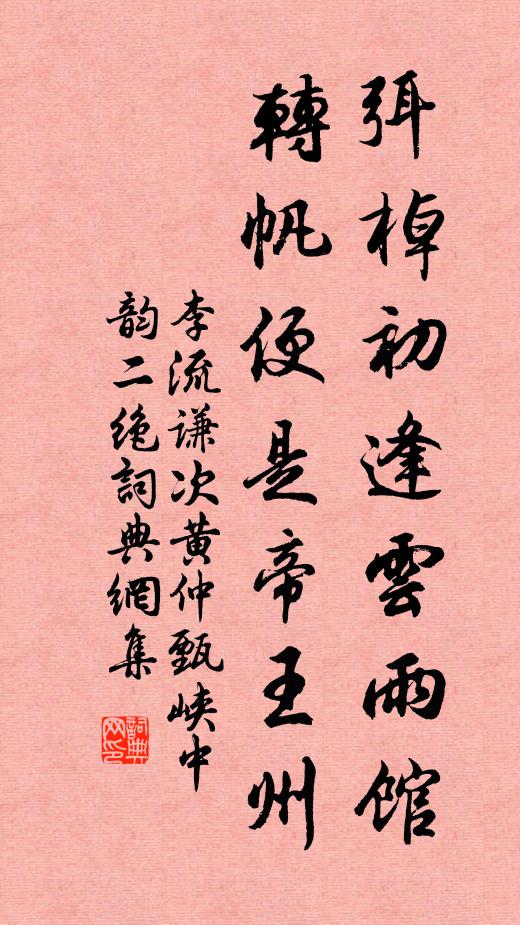 弭棹初逢雲雨館
轉帆便是帝王州
李流謙次黄仲甄峽中
韵二绝詞典網集
詞典網印